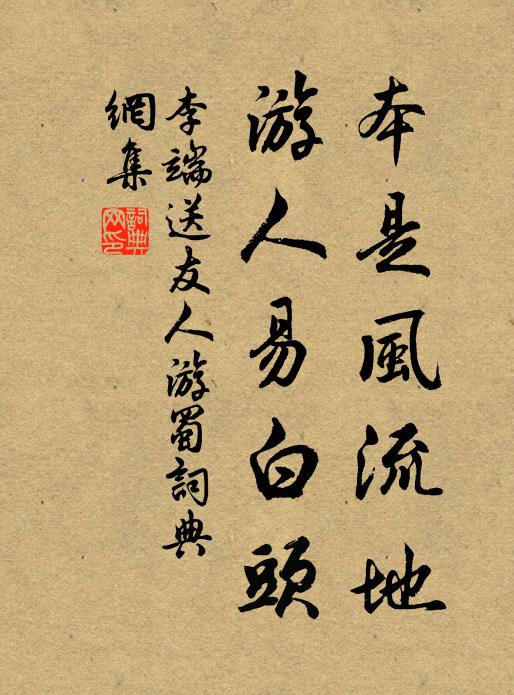 本是風流地
游人易白頭
李端送友人游蜀詞典
網集
詞典
网印